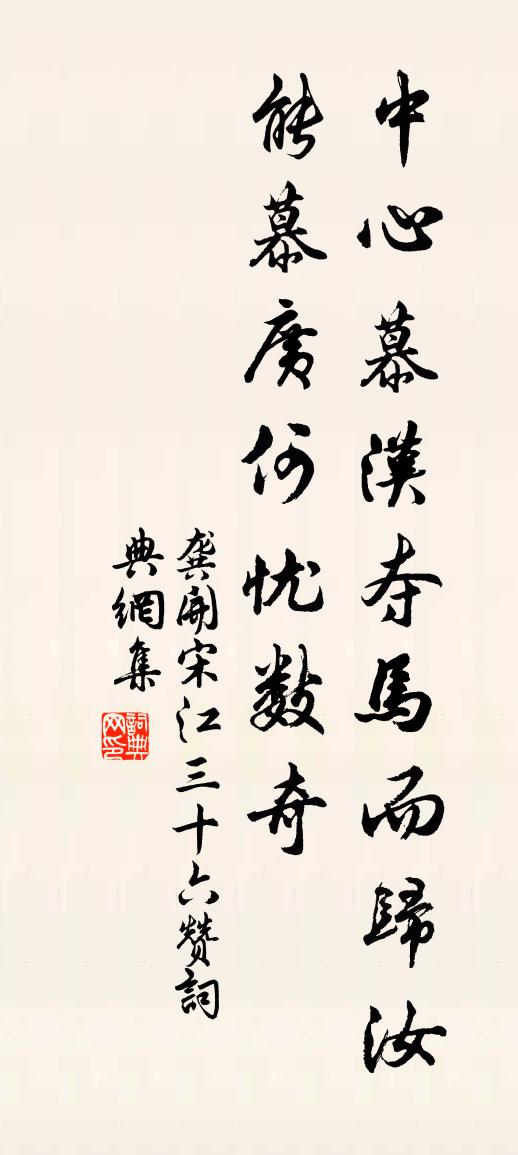 中心慕漢夺馬而歸汝
能慕廣何忧數奇
龔開宋江三十六赞詞
典網集
詞典
网印